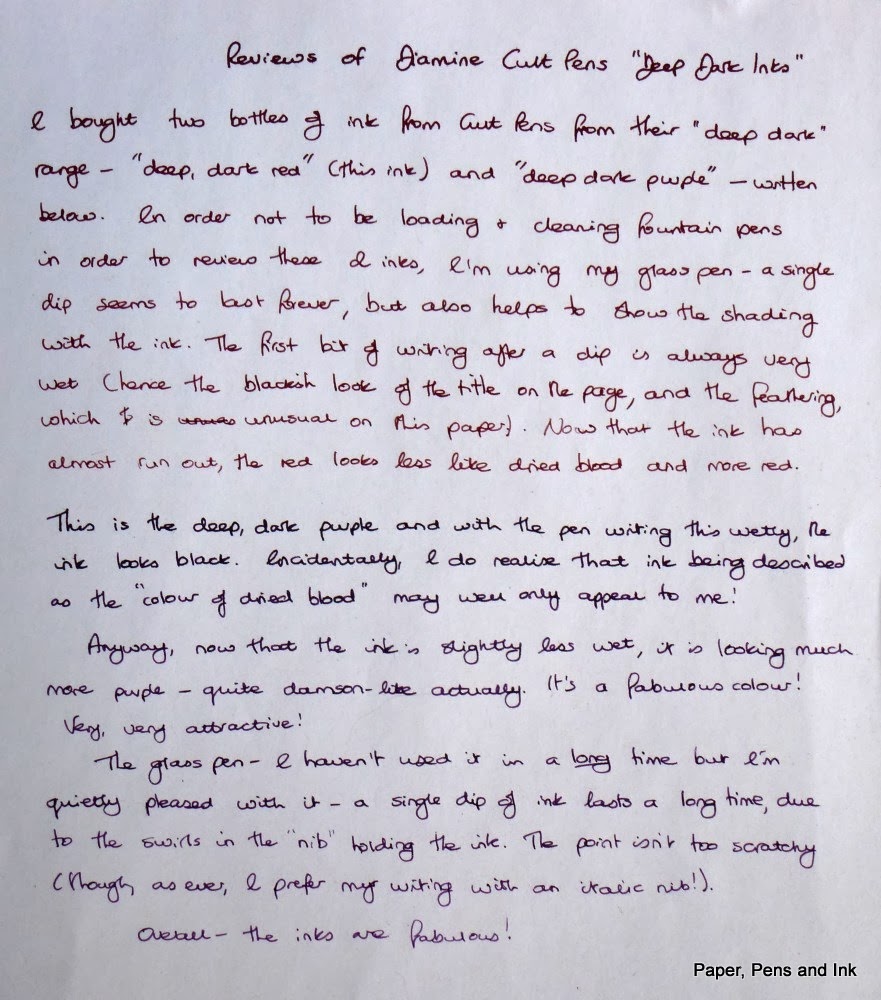 Reviews of Diamine Cult Pens "Deep Dark Inks"
I bought two bottles of ink from Cult Pens from their "deep dark"
range - "deep, dark red" (this ink) and "deep dark purple" - written
below. In order not to be loading + cleaning fountain pens
in order to review these 2 inks, I'm using my glass pen - a single
dip seems to last forever, but also helps to show the shading
with the ink. The first bit of writing after a dip is always very
wet (hence the blackish look of the title on the page, and the feathering,
which is unusual on this paper). Now that the ink has
almost run out, the red looks less like dried blood and more red.
This is the deep, dark purple and with the pen writing this wetly, the
ink looks black. Incidentally, I do realise that ink being described
as the "colour of dried blood" may well only appeal to me!
Anyway, now that the ink is slightly less wet, it is looking much
more purple - quite damson-like actually. It's a fabulous colour!
Very, very attractive!
The glass pen - I haven't used it in a long time but I'm
quietly pleased with it - a single dip of ink lasts a long time, due
to the swirls in the "nib" holding the ink. The point isn't too scratchy
(though, as ever, I prefer my writing with an italic nib!).
Overall - the inks are fabulous!
Paper, Pens and Ink